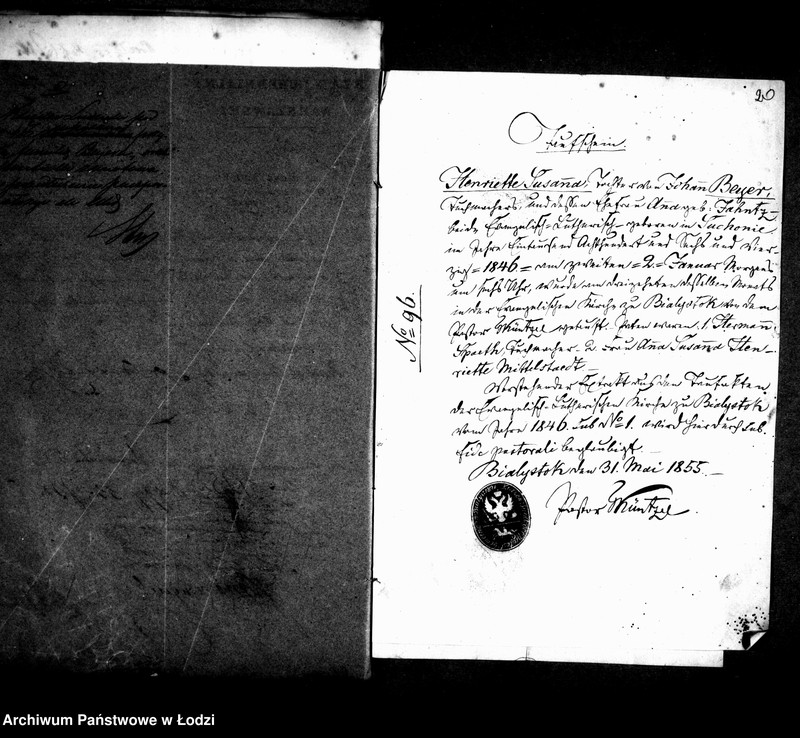 20
Taufschein.
Henriette Susanna, Tochter von Johann Beyer,
Tuchmachers, und dessen Ehefrau Ana geb: Jahntz
beide Evangelisch-Lutherisch - geboren in Suchonie
im Jahre Eintausend Achthundert und Sechs und Vier-
zig = 1846 = am zweiten = 2. = Januar Morgens
um sechs Uhr, wurde am dreizehnten desselben Monats
in der Evangelischen Kirche zu Bialystok von dem
Pastor Müntzel getauft. Paten waren, 1. Hermann
Spaeth, Tuchmacher. 2. Frau Ana Susanna Hen-
riette Mittelstaedt
Vorstehender Extrakt aus den Taufakten
der Evangelisch-Lutherischen Kirche zu Bialystok
vom Jahre 1846. sub No 1. wird hierdurch sub.
fide pastorali beglaubigt.
Bialystok den 31. Mai 1855.
Pastor Müntzel.
No 96.
Archiwum Państwowe w Łodzi